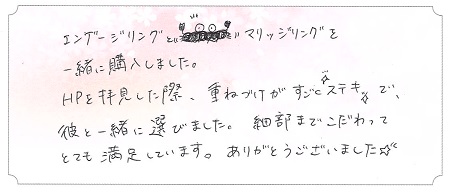 エンゲージリングと マリッジリングを
一緒に購入しました。
HPを拝見した際、重ねづけがすごく☆ステキ☆で、
彼と一緒に選びました。細部までこだわって
とても満足しています。ありがとうございました☆